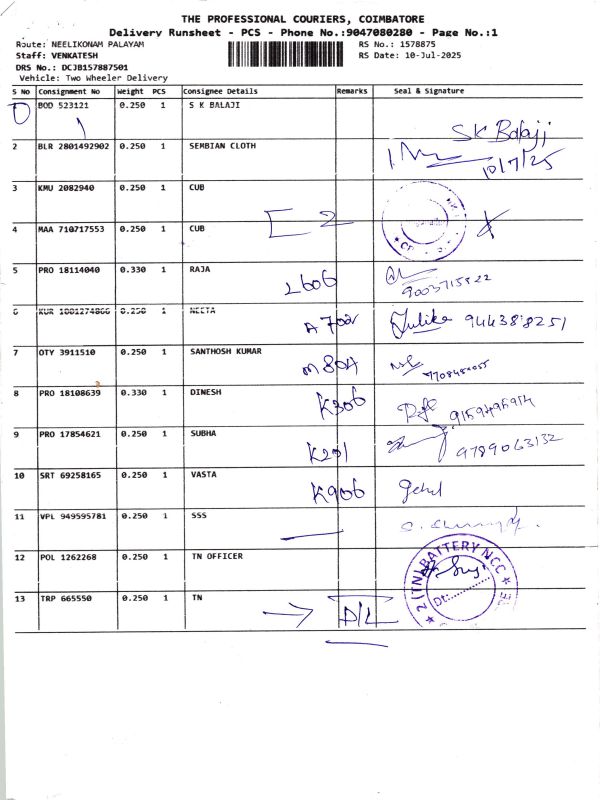 THE PROFESSIONAL COURIERS, COIMBATORE
Delivery Runsheet - PCS - Phone No.:9047080280 - Page No.:1
Route: NEELIKONAM PALAYAM RS No.: 1578875
Staff: VENKATESH RS Date: 10-Jul-2025
DRS No.: DCJB157887501
Vehicle: Two Wheeler Delivery
S No Consignment No Weight PCS Consignee Details Remarks Seal & Signature
BOD 523121 0.250 1 S K BALAJI
SK Balaji
2 BLR 2801492902 0.250 1 SEMBIAN CLOTH
10/7/25
3 KMU 2082940 0.250 1 CUB
E2
4 MAA 710717553 0.250 1 CUB
5 PRO 18114040 0.330 1 RAJA
L606 9003715822
6 KUR 1001274866 0.250 1 NEETA
A 702 Julika 944388251
7 OTY 3911510 0.250 1 SANTHOSH KUMAR
M804
8 PRO 18108639 0.330 1 DINESH
K306 9159495914
9 PRO 17854621 0.250 1 SUBHA
K201 9789063132
10 SRT 69258165 0.250 1 VASTA
K906
11 VPL 949595781 0.250 1 SSS
12 POL 1262268 0.250 1 TN OFFICER
2 (TN) BATTERY NCC
Dt:
13 TRP 665550 0.250 1 TN
D/L